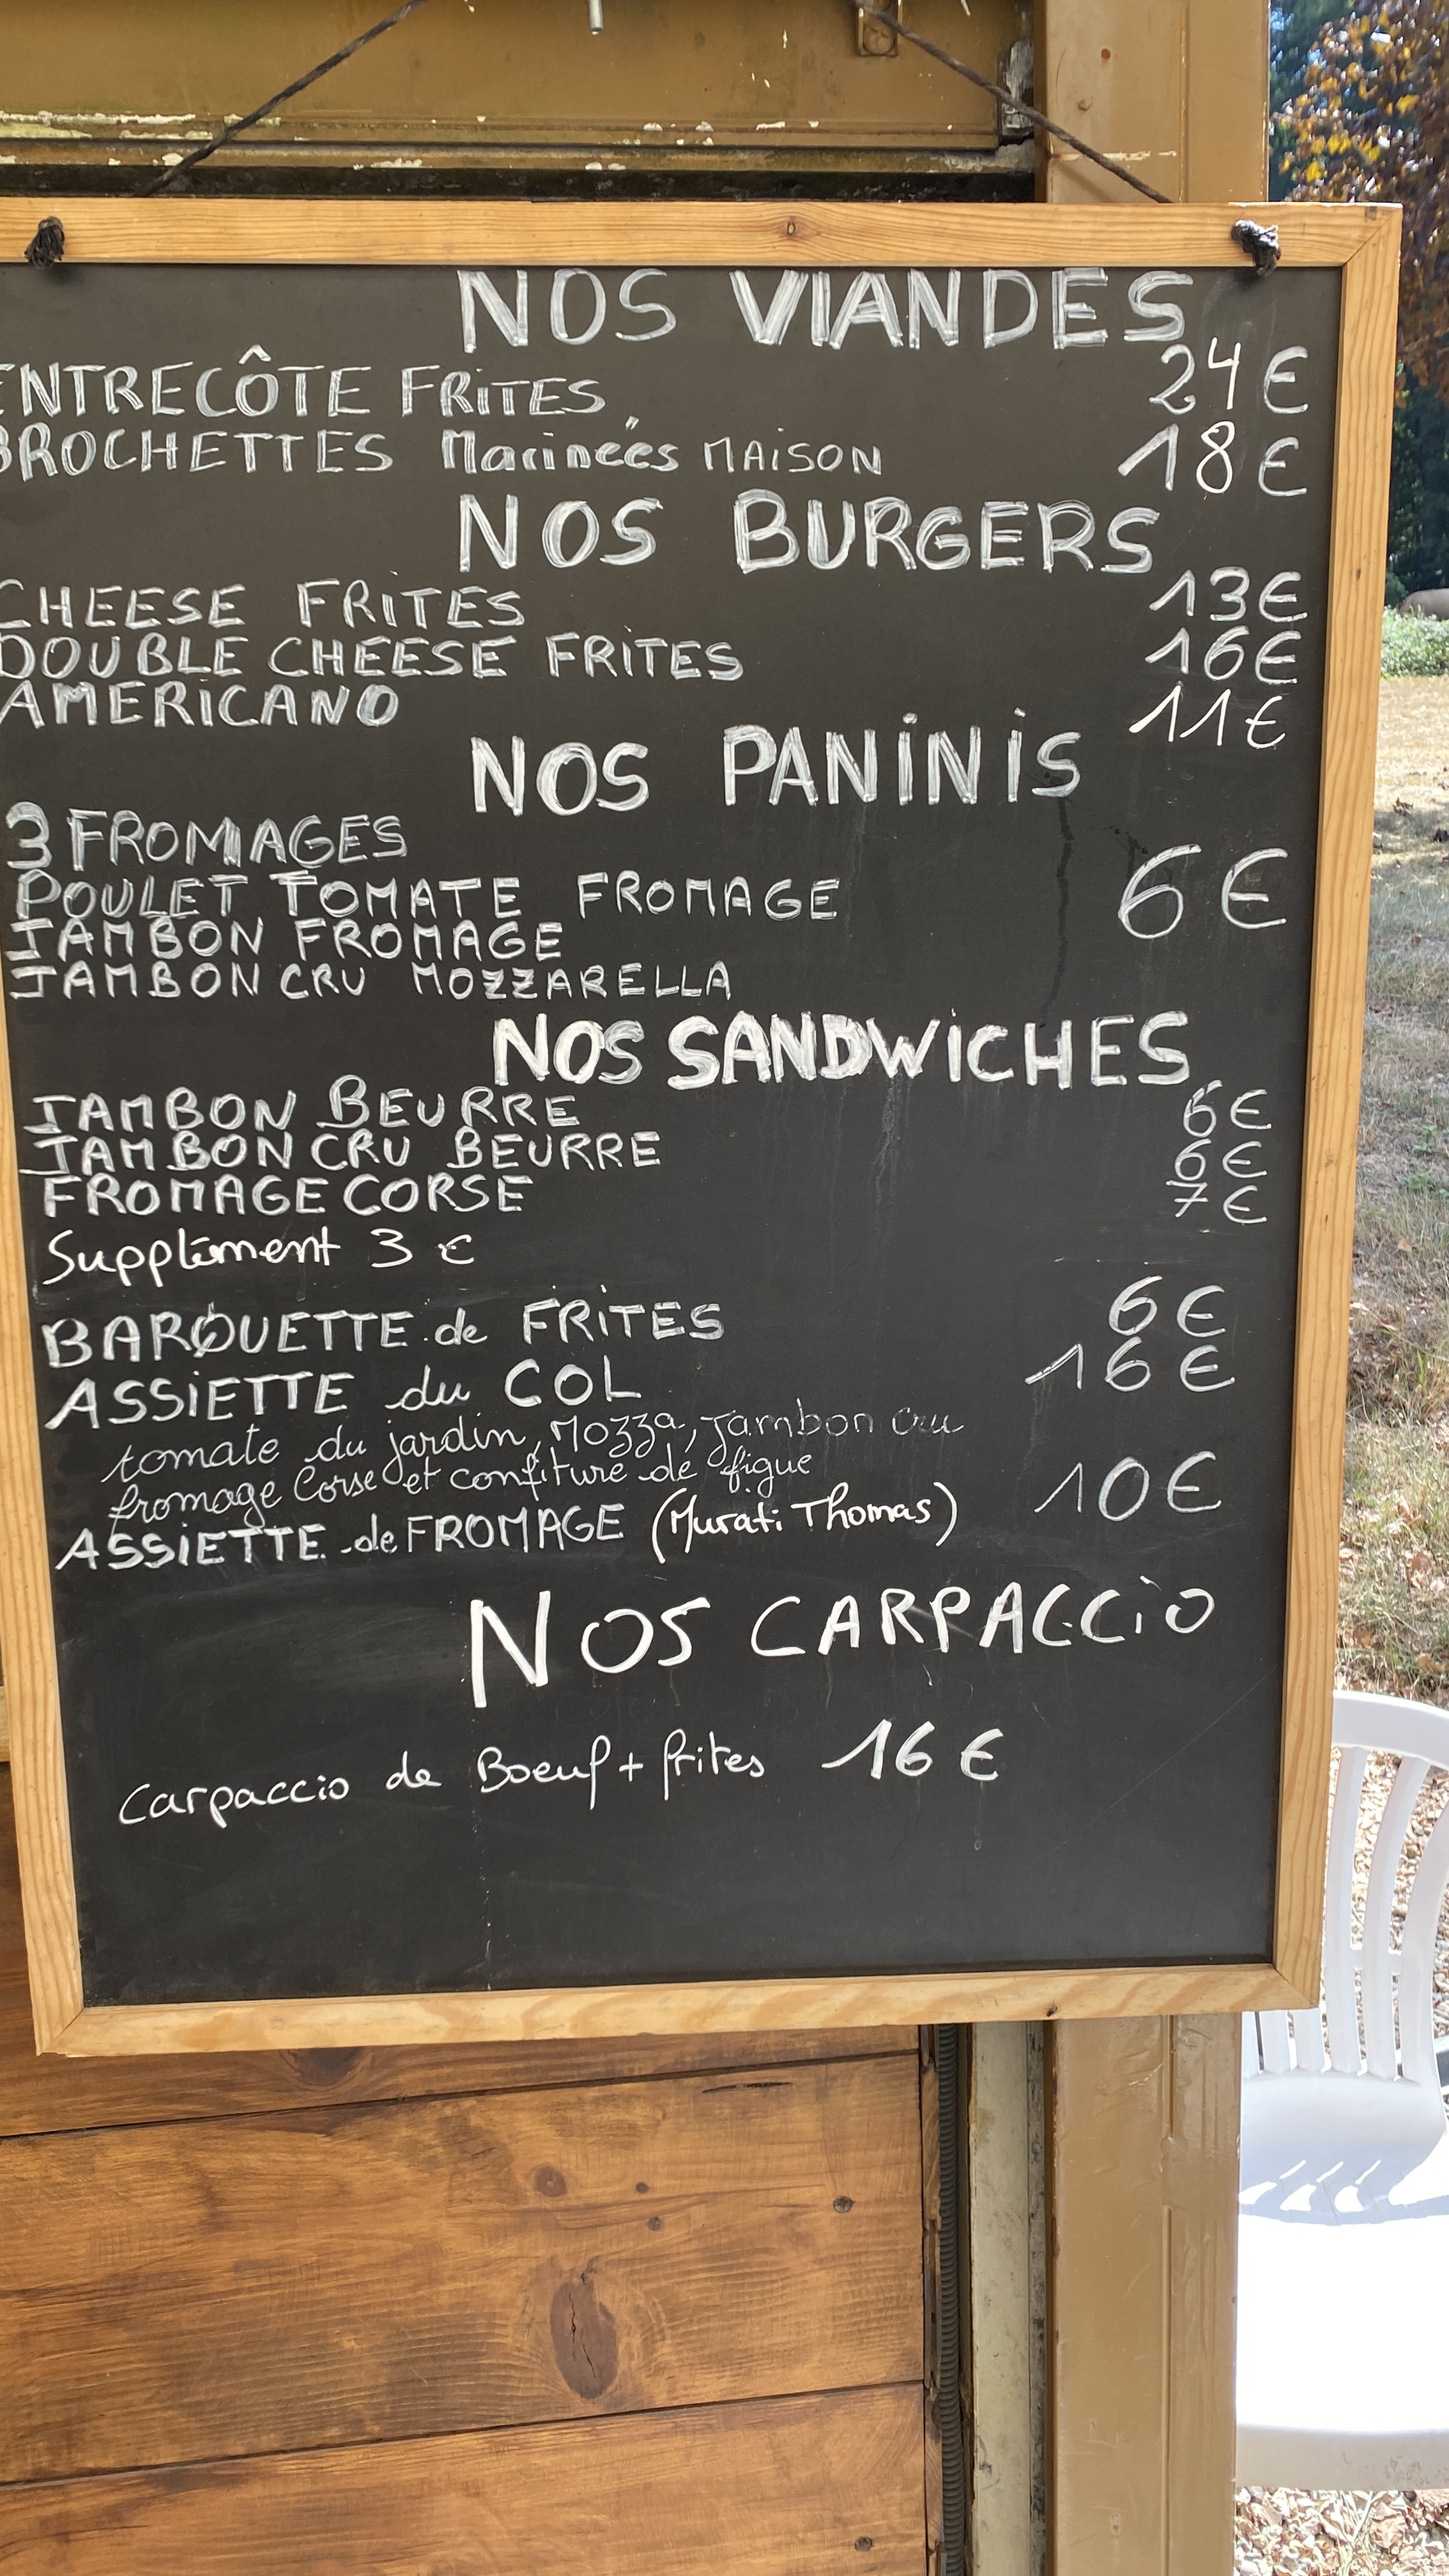 NOS VIANDES
ENTRECÔTE FRITES 24€
BROCHETTES Marinées MAISON 18€
NOS BURGERS
CHEESE FRITES 13€
DOUBLE CHEESE FRITES 16€
AMERICANO 11€
NOS PANINIS
3 FROMAGES
POULET TOMATE FROMAGE 6€
JAMBON FROMAGE
JAMBON CRU MOZZARELLA
NOS SANDWICHES
JAMBON BEURRE 6€
JAMBON CRU BEURRE 6€
FROMAGE CORSE 7€
Supplément 3€
BARQUETTE de FRITES 6€
ASSIETTE du COL 16€
tomate du jardin, Mozza, Jambon Cru
fromage Corse et confiture de figue
ASSIETTE de FROMAGE (Murati Thomas) 10€
NOS CARPACCIO
Carpaccio de Boeuf + frites 16€